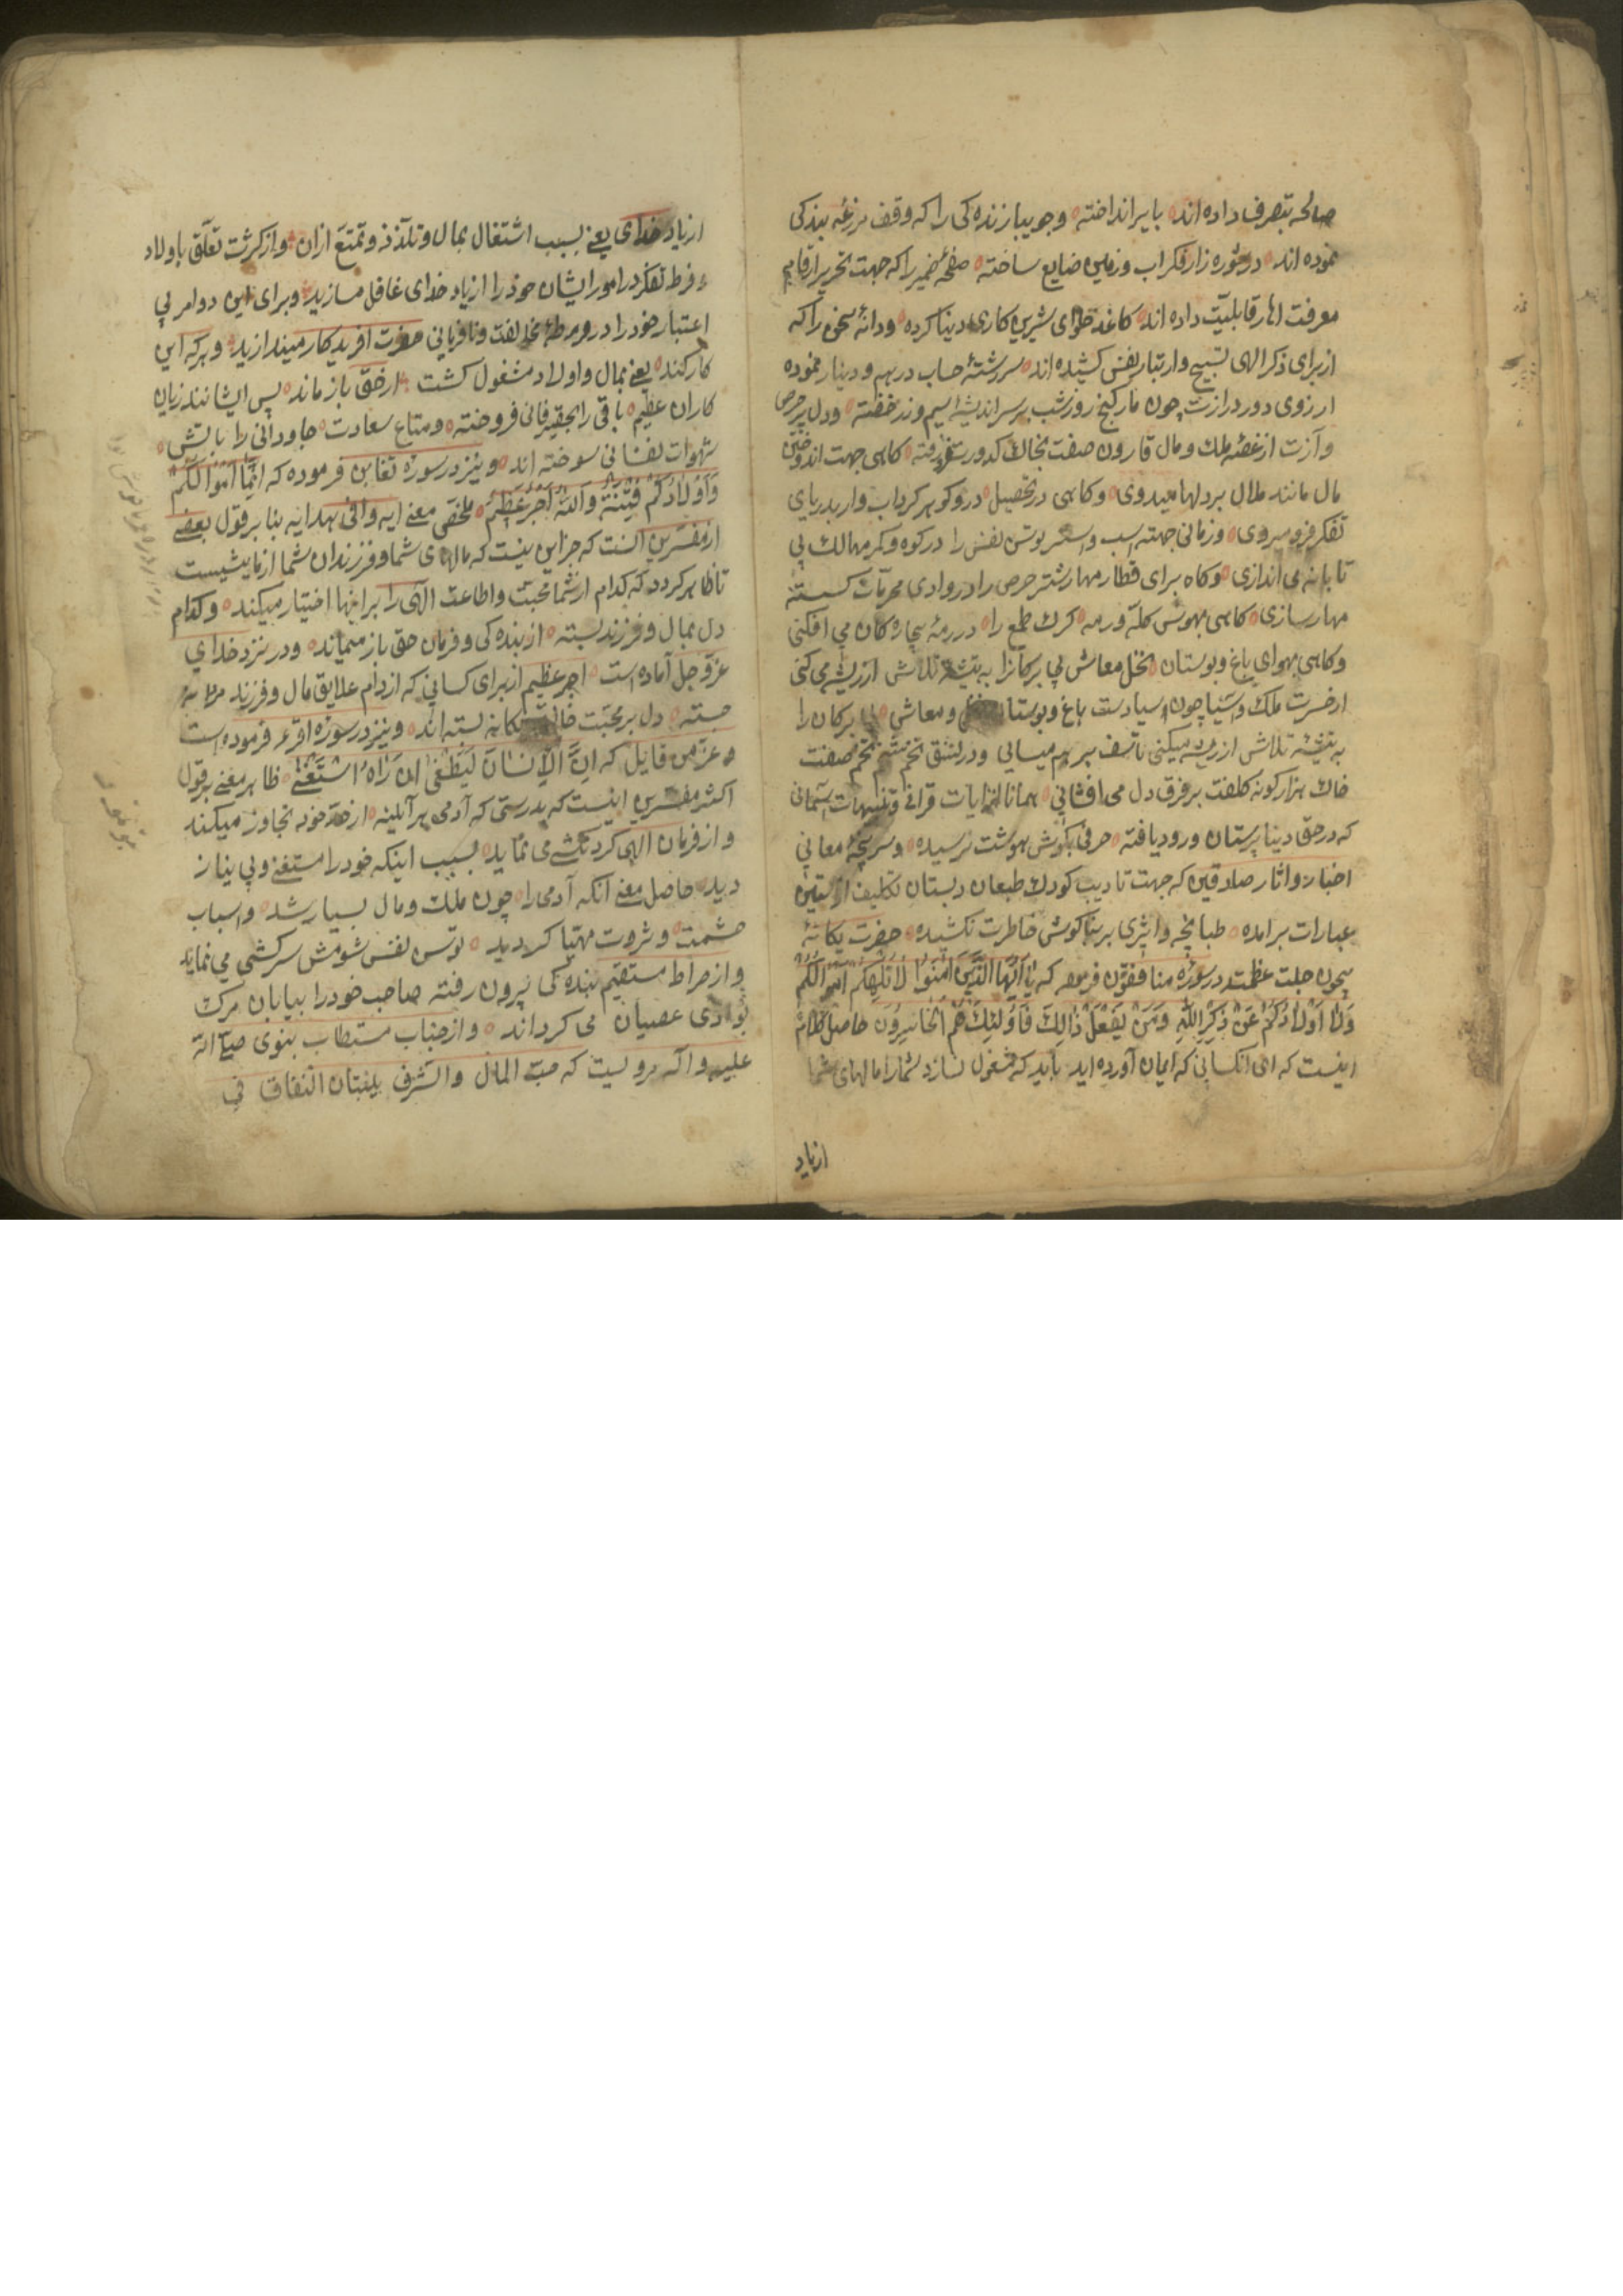 صالحه بتصرف داده اند بایر انداخته وجویبار زنده کی را که وقف مزرعه بندکی
نموده اند در شوره زار فکر اب وزمین ضایع ساخته صفحه ضمیر را که جهت تحریر ارقام
معرفت اظهار قابلیت داده اند کاغذ حلوای شیرین کاری دنیا کرده ودانه سخن را که
از برای ذکر الهی تسبیح وار بتار نفس کشیده اند سررشته حساب درهم ودینار نموده
ارزوی دور درازت چون مار کنج روز وشب بر سر اندیشه سیم وزر خفته ودل پر حرص
وآزت از غصه ملک ومال قارون صفت بخاک کدورت فرو رفته کاهی جهت اندوختن
مال مانند ملال بردلها میدوی وکاهی در تحصیل در وکوهر کرداب وار بدریای
تفکر فرو میروی وزمانی جهت اسب واستر توسن نفس را در کوه وکمر مهالک بی
تابانه می اندازی وکاه برای قطار مهار شتر حرص را در وادی محرمات کسسته
مهار سازی کاهی بهوس کله ورمه کرک طمع را در رمه بیچاره کان می افکنی
وکاهی بهوای باغ وبوستان نخل معاش بی برکانرا به تیشه تلاش از ریشه می کنی
از حسرت ملک واسیا چون اسیا دست باغ وبوستان ومعاش بی برکان را
به تیشه تلاش از ریشه میکنی تاسف بر هم میسایی ودر عشق تخم
خاک هزار کونه کلفت بر فرق دل می افشانی همانا از ایات قرانی وتنبیهات آسمانی
که در حق دنیا پرستان ورود یافته حرفی بکوش هوشت نرسیده وسرپنجه معانی
اخبار واثار صادقین که جهت تادیب کودک طبعان دبستان تکلیف از آستین
عبارات برامده طبانچه واثری بر بناکوش خاطرت نکشیده حضرت یکانه
بیچون جلت عظمته در سوره منافقون فرموده که یَا اَیُّهَا الَّذِینَ اٰمَنُوا لَا تُلْهِکُمْ اَمْوَالُکُمْ
وَلَا اَوْلَادُکُمْ عَنْ ذِکْرِ اللّٰهِ وَمَنْ یَفْعَلْ ذَالِکَ فَاُولٰئِکَ هُمُ الْخَاسِرُونَ حاصل کلام
اینست که ای انکسانی که ایمان آورده اید باید که مشغول نسازد شمارا مالهای شما
ازیاد
ازیاد خدای یعنی بسبب اشتغال بمال وتلذذ وتمتع ازان واز کثرت تعلق باولاد
وفرط تفکر در امور ایشان خود را از یاد خدای غافل مسازید وبرای این دو امر بی
اعتبار خود را در ورطه مخالفت ونافرمانی حضرت افریدکار میندازید وهر که این
کار کند یعنی بمال واولاد مشغول کشت از حق باز ماند پس ایشانند زیان
کاران عظیم باقی را بحقیر فانی فروخته ومتاع سعادت جاودانی را بآتش
شهوات نفسانی سوخته اند ونیز در سوره تغابن فرموده که اِنَّمَا اَمْوَالُکُمْ
وَاَوْلَادُکُمْ فِتْنَةٌ وَاللّٰهُ اَجْرٌ عَظِیمٌ ملخص معنی ایه وافی هدایه بنا بر قول بعضی
از مفسرین آنست که جز این نیست که مالهای شما وفرزندان شما ازمایشیست
تا ظاهر کردد که کدام از شما محبت واطاعت الهی را بر اینها اختیار میکند وکدام
دل بمال وفرزند بسته از بنده کی وفرمان حق باز میماند ودر نزد خدای
عز وجل آماده است اجر عظیم از برای کسانی که از دام علایق مال وفرزند مردانه
جسته دل بر محبت خالق یکانه بسته اند ونیز در سوره اقرء فرموده است
وعز من قایل که اِنَّ الْاِنْسَانَ لَیَطْغٰی اَنْ رَاٰهُ اسْتَغْنٰی ظاهر معنی بر قول
اکثر مفسرین اینست که بدرستی که آدمی هر آئینه از حد خود تجاوز میکند
واز فرمان الهی کردنکشی می نماید بسبب اینکه خود را مستغنی وبی نیاز
دید حاصل معنی آنکه آدمی را چون ملک ومال بسیار شد واسباب
حشمت وثروت مهیا کردید توسن نفس شومش سرکشی می نماید
واز صراط مستقیم بنده کی بیرون رفته صاحب خود را بیابان مرک
بوادی عصیان می کرداند واز جناب مستطاب نبوی صلی الله
علیه وآله مرویست که حب المال والشرف ینبتان النفاق فی